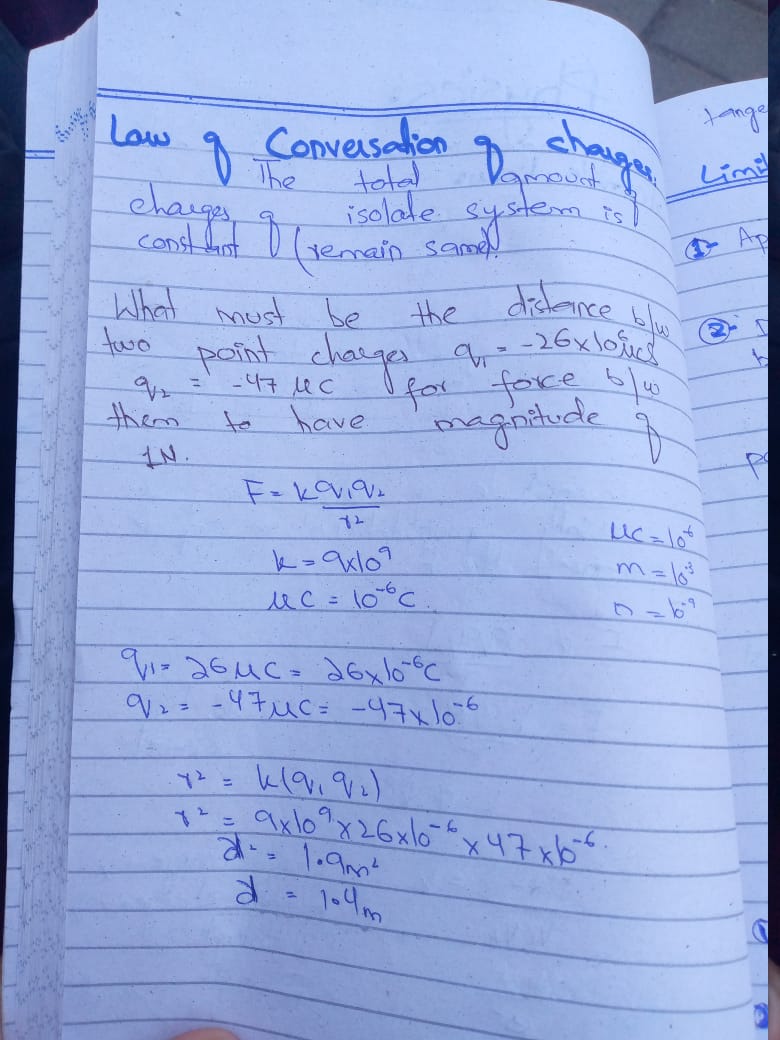 Law of Conversation of charges.
The total amount of
charges of isolate system is
constant (remain same)
What must be the distance b/w
two point charges q₁ = -26x10⁻⁶μcs
q₂ = -47 μc for force b/w
them to have magnitude of
1N.
F = kq₁q₂
r2
k = 9x10⁹
μc = 10⁻⁶C.
μc = 10⁻⁶
m = 10⁻³
n = 10⁻⁹
q₁ = 26μC = 26x10⁻⁶C
q₂ = -47μC = -47x10⁻⁶
r² = k(q₁ q₂)
r² = 9x10⁹ x 26x10⁻⁶ x 47x10⁻⁶.
d² = 1.9m²
d = 1.4m
tange
Limit
① Ap
②